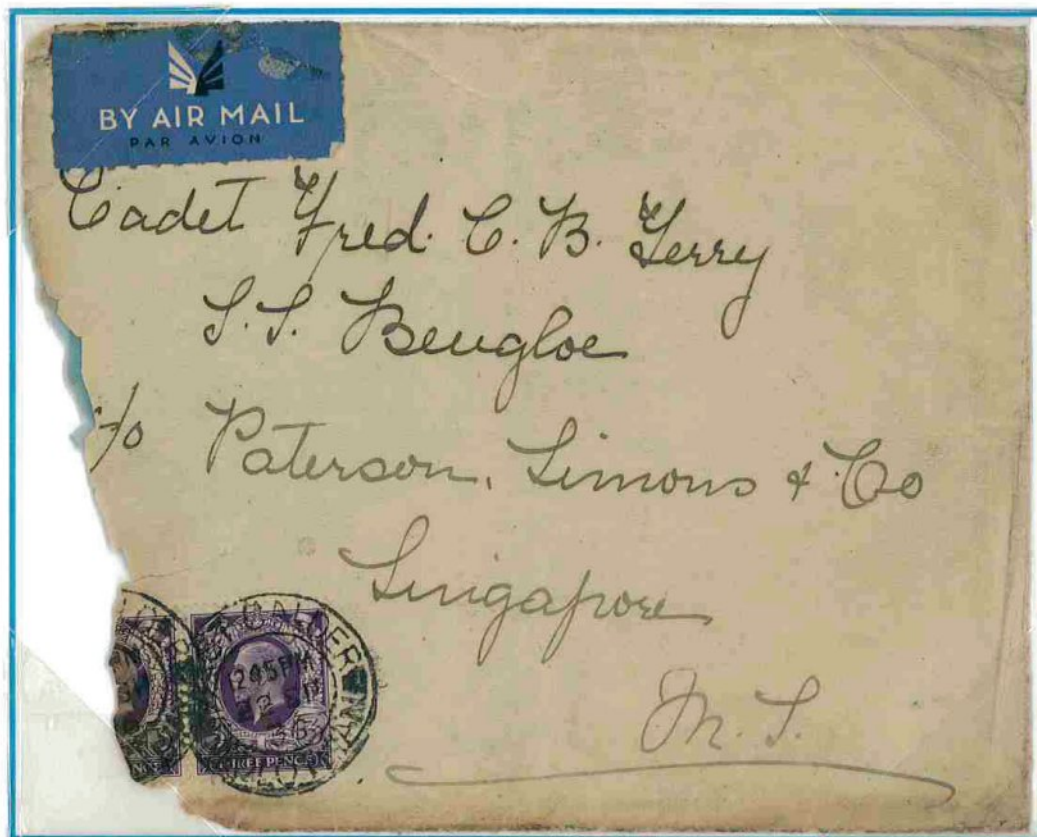 BY AIR MAIL
PAR AVION
Cadet Fred. C. B. Terry
S.S. Bengloe
c/o Paterson, Simons & Co
Singapore
M. S.
CALDER
2 45 PM
THREE PENCE